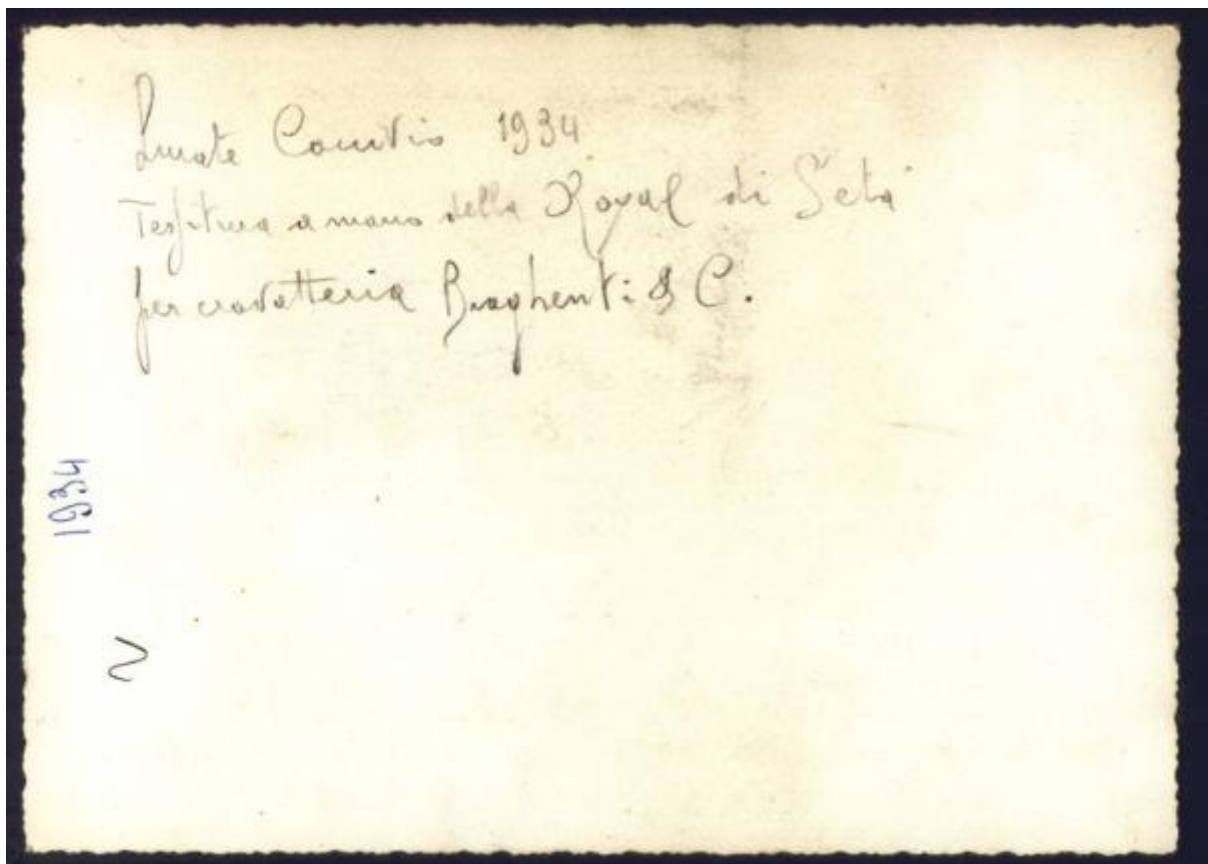 Lurate Caccivio 1934
Tessitura a mano della Royal di Seta
per cravatteria Braghenti & C.
1934